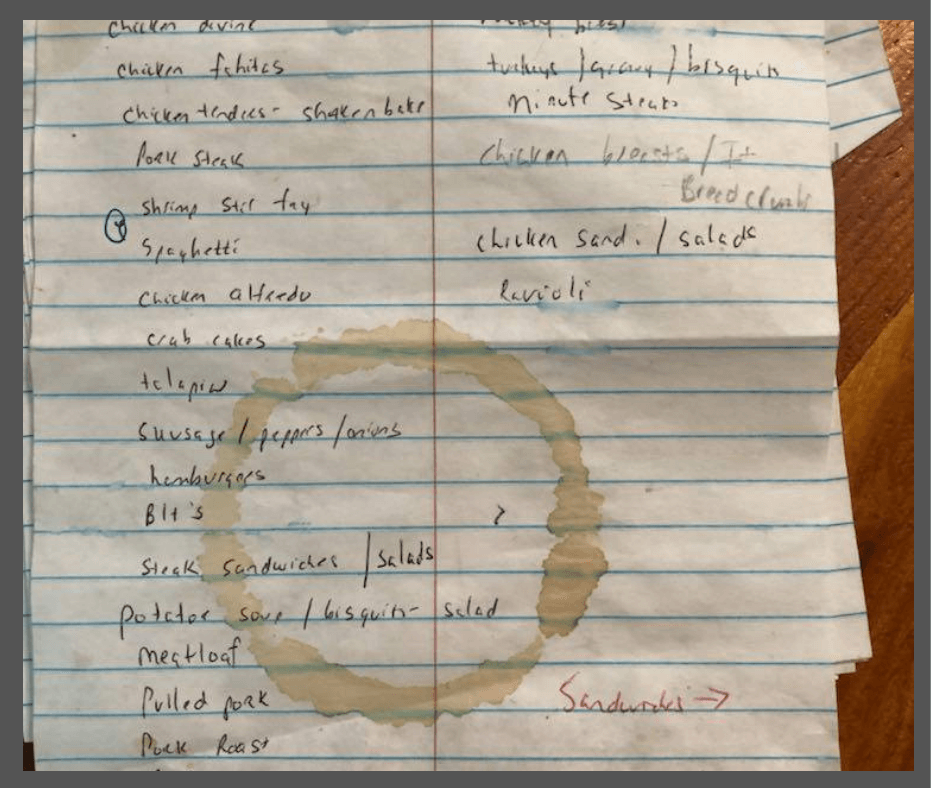 chicken divine
chicken fahitas
chicken tendies - shaken bake
Pork Steak
Shrimp stir fay
Spaghetti
Chicken alfredo
crab cakes
talapia
Suusage / peppers / onions
hamburgers
Blt's
Steak sandwiches / salads
potatoe soup / bisquits - salad
meatloaf
Pulled pork
Pork Roast
turkeys / gravy / bisquits
Minute Steaks
Chicken breasts / It
Breadcrumbs
chicken sand. / salads
Ravioli
?
Sandwiches →